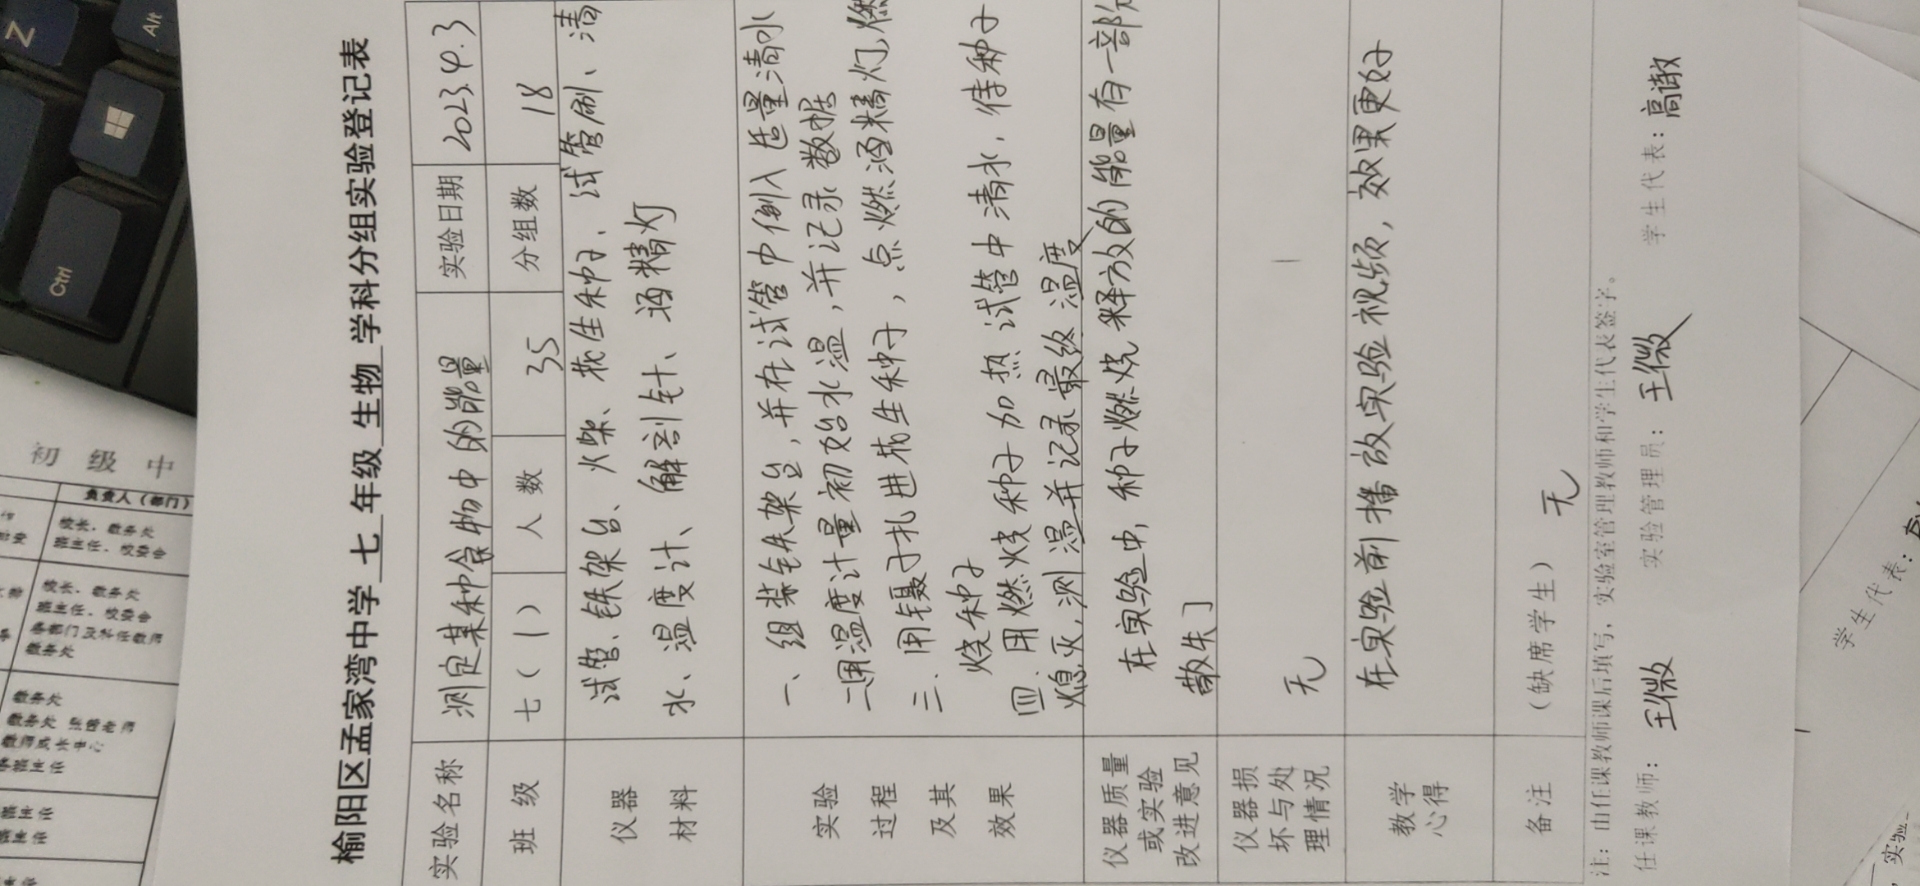 榆阳区孟家湾中学 七 年级 生物 学科分组实验登记表
实验名称 测定某种食物中的能量 实验日期 2023.4.3
班 级 七(1) 人 数 35 分组数 18
仪器
材料
试管、铁架台、火柴、花生种子、试管刷、清
水、温度计、解剖针、酒精灯
实验
过程
及其
效果
一、组装铁架台,并在试管中倒入适量清水
二用温度计量初始水温,并记录数据
三.用镊子扎进花生种子,点燃酒精灯,燃
烧种子
四.用燃烧种子加热试管中清水,待种子
熄灭,测温并记录最终温度
仪器质量
或实验
改进意见
在实验中,种子燃烧释放的能量有一部分
散失
仪器损
坏与处
理情况
无
教学
心得
在实验前播放实验视频,效果更好
备注
(缺席学生) 无
注:由任课教师课后填写,实验室管理教师和学生代表签字。
任课教师: 王微 实验管理员: 王微 学生代表: 高澉
Z
Alt
Ctrl
初 级 中
负责人(部门)
校长、教务处
班主任、校委会
校长、教务处
班主任、校委会
教务处
教务处
班主任
班主任
班主任
学生代表:
实验